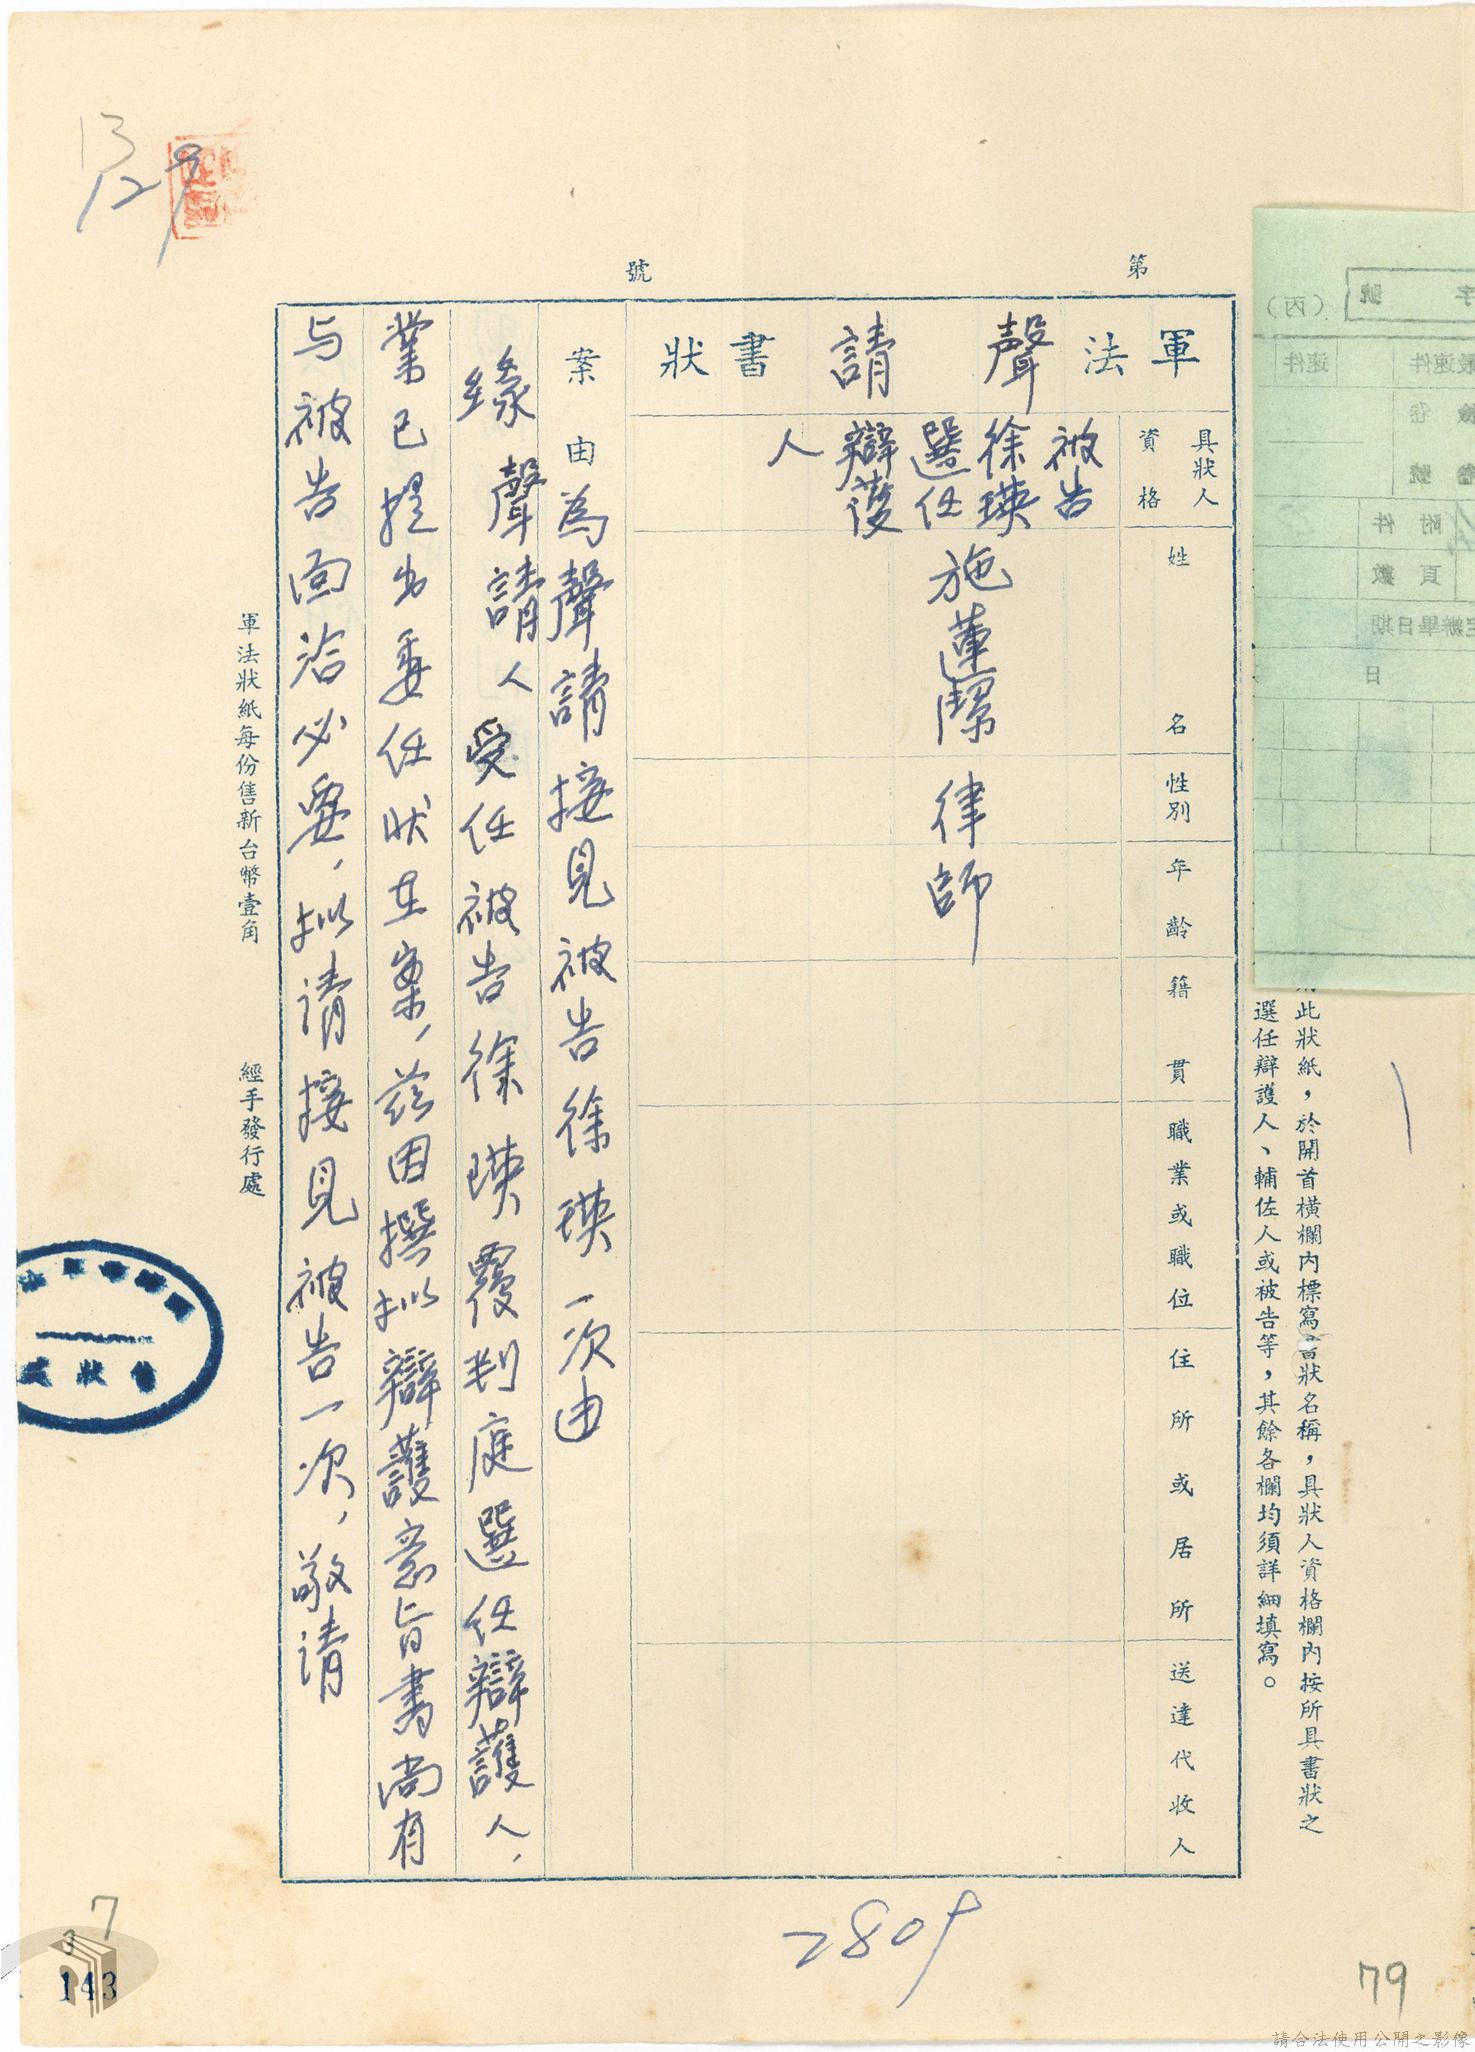 第 號
此狀紙，於開首橫欄內標寫書狀名稱，具狀人資格欄內按所具書狀之
選任辯護人、輔佐人或被告等，其餘各欄均須詳細填寫。
軍法聲請書狀
具狀人
資格
姓名
性別
年齡
籍貫
職業或職位
住所或居所
送達代收人
被告
徐瑛
選任
辯護
人
施蓮潔律師
案由
為聲請接見被告徐瑛一次由
緣聲請人受任被告徐瑛覆判庭選任辯護人，
業已提出委任狀在案，茲因撰拟辯護意旨書尚有
与被告面洽必要，拟請接見被告一次，敬請
軍法狀紙每份售新台幣壹角 經手發行處
售狀
13
129
2809
79
7
3
143
號
字
（丙）
最速件
速件
卷
號
附件
頁數
辦畢日期
日
請合法使用公開之影像